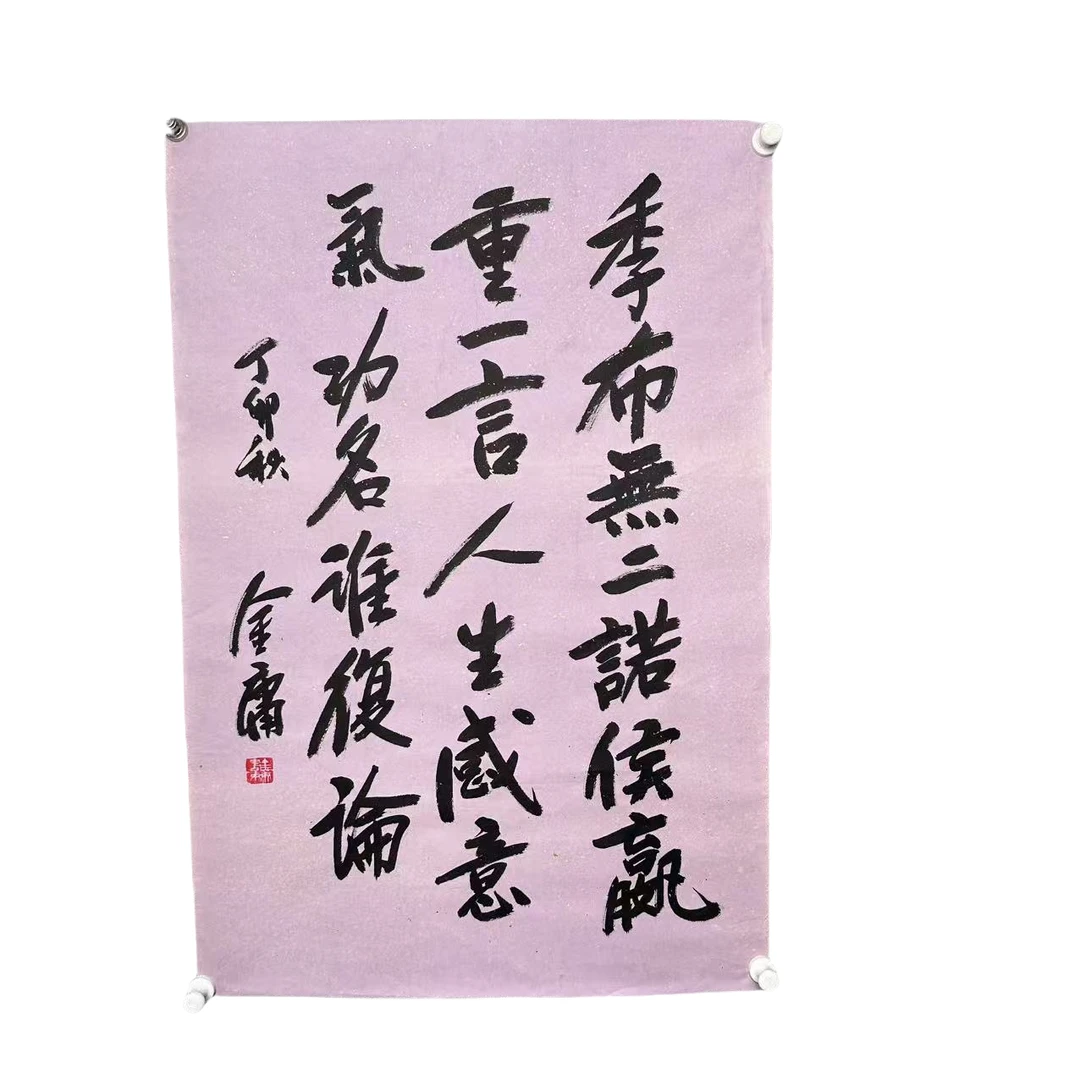 季布無二諾侯嬴
重一言人生感意
氣功名誰復論
丁卯秋
金庸